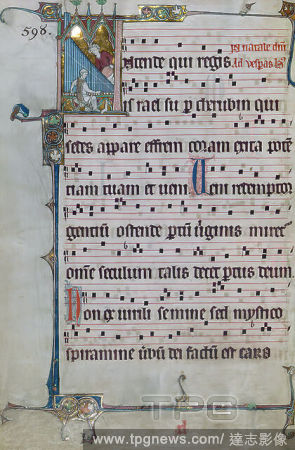 598.
Intende qui regis
In natale dni
Ad vesperas
israel sup cherubin qui
sedes appare effrem coram excita poten
ciam tuam et veni Veni redemptor
gentium ostende partum virginis mire
omne seculum talis decet partus deum
Non ex virili semine sed mystico
spiramine verbum dei factum est caro
TPG
www.tpgnews.com/達志影像